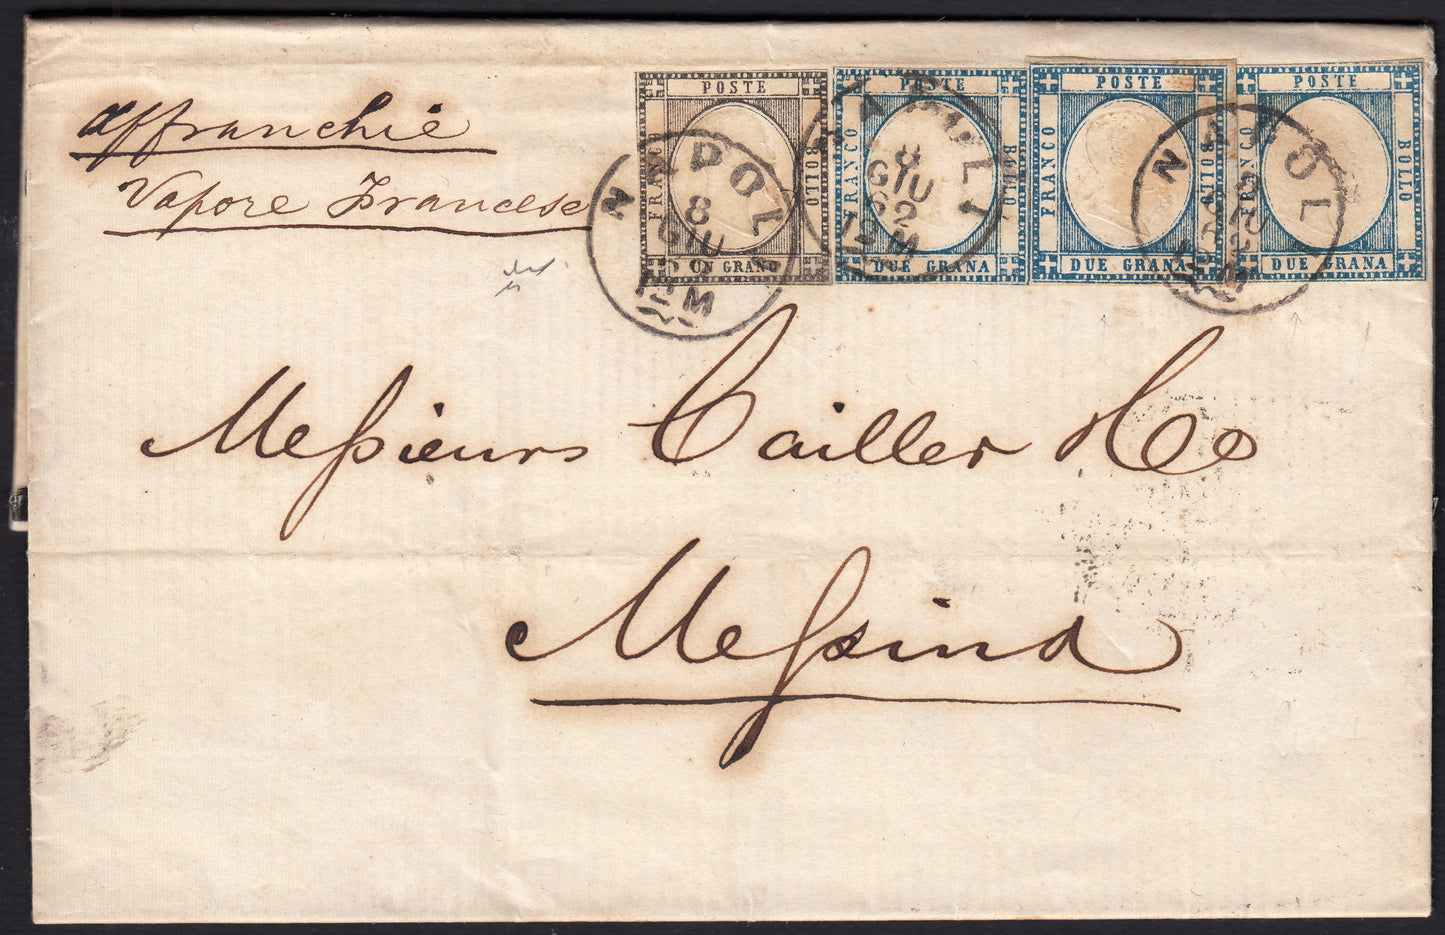 affranchie
Vapore Francese
POSTE
FRANCO
BOLLO
UN GRANO
POSTE
FRANCO
BOLLO
DUE GRANA
POSTE
FRANCO
DUE GRANA
POSTE
BOLLO
DUE GRANA
NAPOLI
8
GIU
12 M
NAPOLI
8
GIU
62
12 M
NAPOLI
8
GIU
62
12 M
Messieurs Cailler & Co
Messina